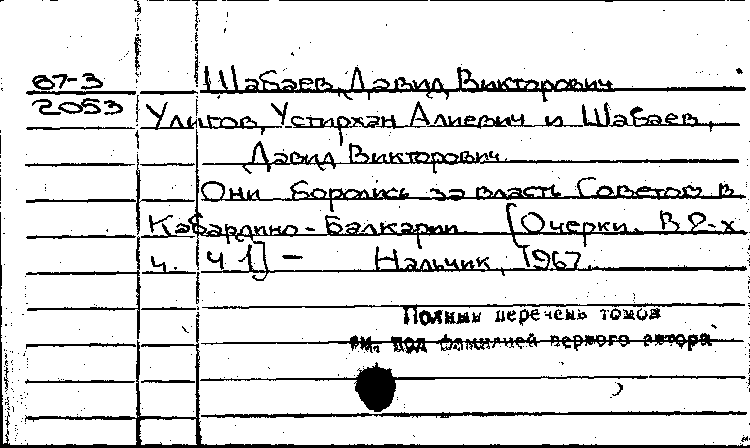 67-3 Шабаев, Давид Викторович
2053 Улигов, Устирхан Алиевич и Шабаев,
Давид Викторович.
Они боролись за власть Советов в
Кабардино-Балкарии. [Очерки. В 2-х
ч. Ч 1] — Нальчик, 1967.
Полный перечень томов
см. под фамилией первого автора